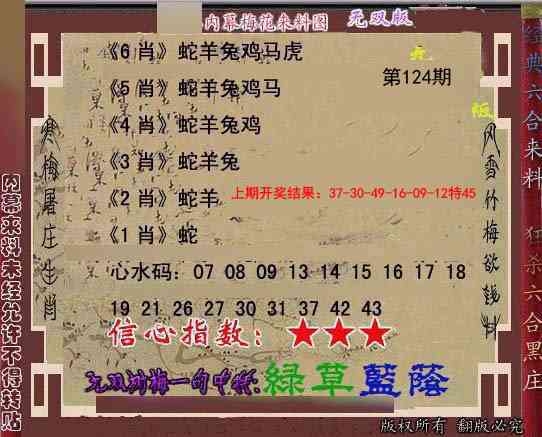 内幕梅花来料图 无双版
《6 肖》蛇羊兔鸡马虎
无
第124期
《5 肖》蛇羊兔鸡马
版
《4 肖》蛇羊兔鸡
《3 肖》蛇羊兔
《2 肖》蛇羊
上期开奖结果：37-30-49-16-09-12特45
《1 肖》蛇
心水码：07 08 09 13 14 15 16 17 18
19 21 26 27 30 31 37 42 43
信心指数：★★★
无双刘梅一句中特:綠草藍蔭
寒梅屠庄生肖
风雪竹梅欲钱料
内幕来料未经允许不得转贴
经典六合来料 狂杀六合黑庄
版权所有 翻版必究